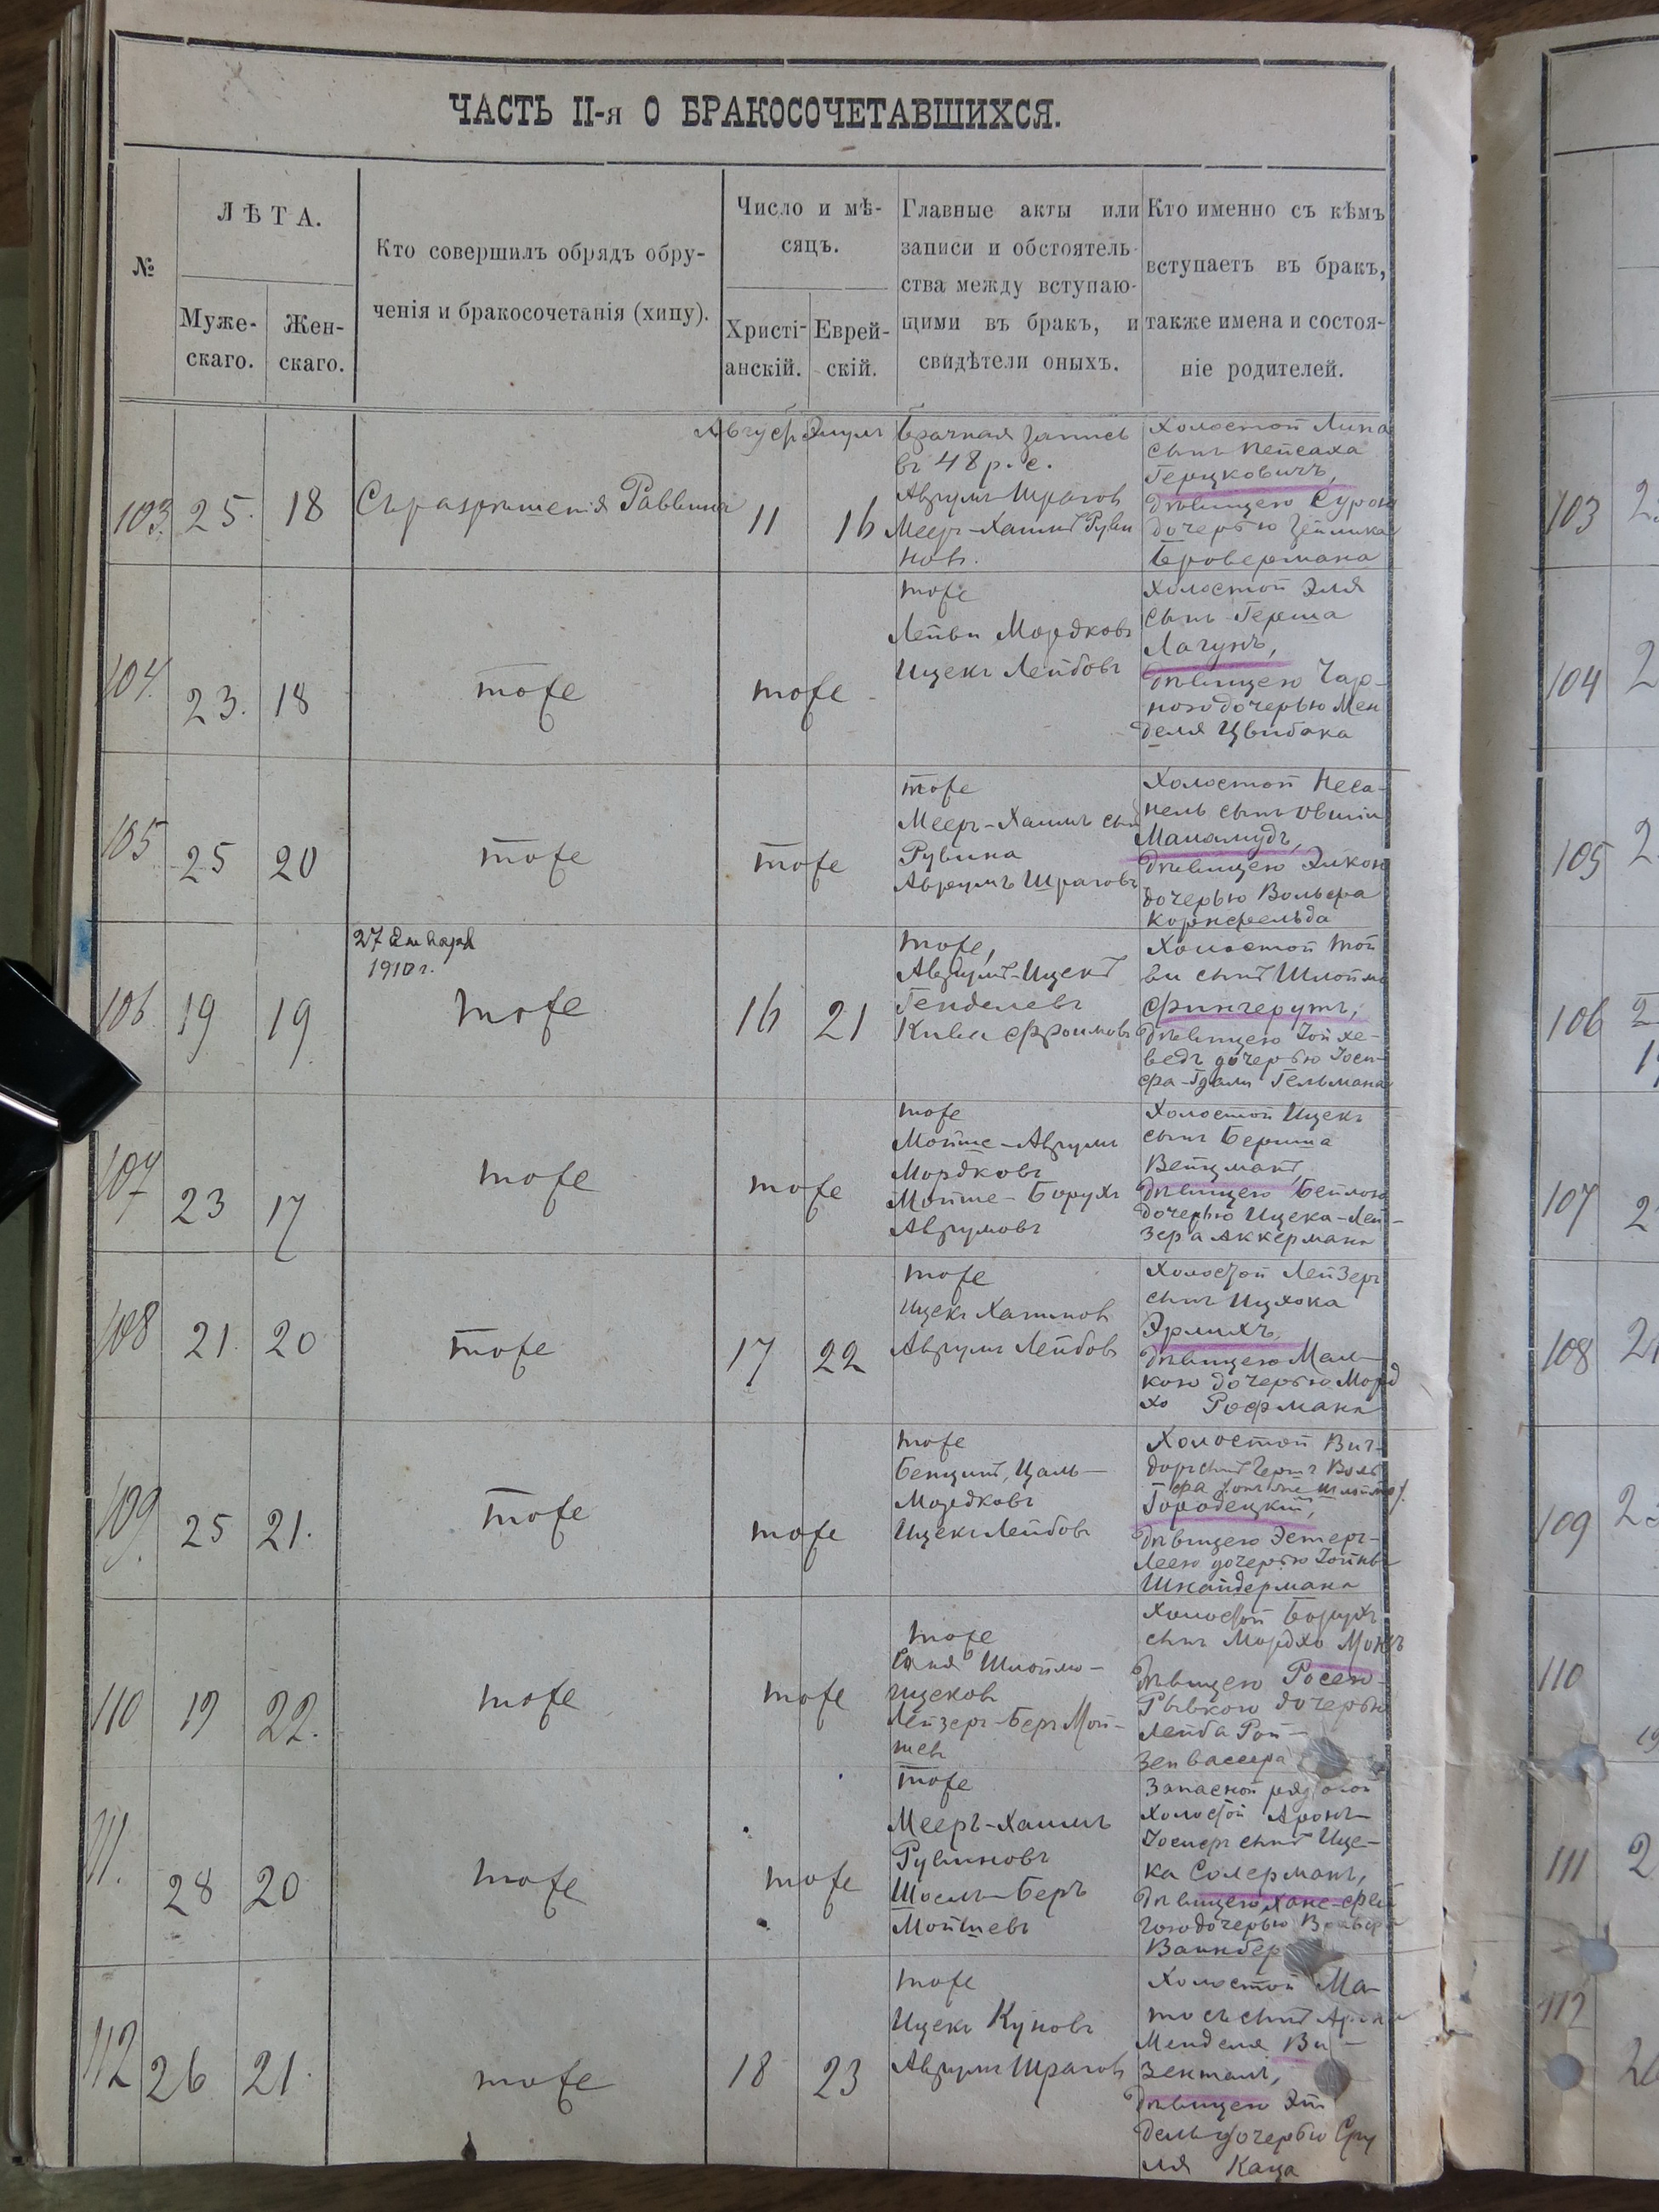 ЧАСТЬ II-я О БРАКОСОЧЕТАВШИХСЯ.
№
ЛѢТА.
Муже-
скаго.
Жен-
скаго.
Кто совершилъ обрядъ обру-
ченія и бракосочетанія (хипу).
Число и мѣ-
сяцъ.
Христі-
анскій.
Еврей-
скій.
Главные акты или
записи и обстоятель-
ства между вступаю-
щими въ бракъ, и
свидѣтели оныхъ.
Кто именно съ кѣмъ
вступаетъ въ бракъ,
также имена и состоя-
ніе родителей.
103. 25. 18
Съ разрѣшенія Раввина
Август Элулъ
11 16
Брачная запись
въ 48 р. с.
Аврумъ Шраговъ
Мееръ-Хаимъ Руви
новъ.
Холостой Липа
сынъ Пейсаха
Герцковичъ,
дѣвицею Сурою
дочерью Зейлика
Бровермана
104. 23. 18
тоже
тоже
тоже
Лейви Мордковъ
Ицекъ Лейбовъ
Холостой Эля
сынъ Герша
Лагунъ,
дѣвицею Чар-
ною дочерью Мен
деля Цвибака
105 25 20
тоже
тоже
тоже
Мееръ-Хаимъ сын
Рувина
Аврумъ Шраговъ
Холостой Неса-
нель сынъ Овшіи
Маламудъ,
дѣвицею Эликою
дочерью Вольфа
Корнфельда
27 Января
1910 г.
106 19 19
тоже
16 21
тоже,
Аврумъ-Ицекъ
Генделевъ
Кива Фроимовъ
Холостой Той
ви сынъ Шлоймы
Фингерутъ,
дѣвицею Іойхе-
ведъ дочерью Іоси-
фа-Гдали Гельмана
107 23 17
тоже
тоже
тоже
Мойше-Аврумъ
Мордковъ
Мойше-Борухъ
Аврумовъ
Холостой Ицекъ
сынъ Бериша
Вейцманъ,
дѣвицею Бейлою
дочерью Ицека-Лей-
зера Аккермана
108 21. 20
тоже
17 22
тоже
Ицекъ Хаимовъ
Аврумъ Лейбовъ
Холостой Лейзеръ
сынъ Ицхока
Эрлихъ,
дѣвицею Мал-
кою дочерью Морд
хо Рофмана
109. 25 21.
тоже
тоже
тоже
Бенціи, Цаль-
Мордковъ
Ицекъ Лейбовъ
Холостой Виг-
доръ сынъ Герш Воль
Городецкій,
дѣвицею Эстеръ-
Леею дочерью Іойны
Шнайдермана
110 19 22.
тоже
тоже
тоже
Шлоймо-
Ицеков
Лейзеръ-Беръ Мой-
шев
Холостой Борухъ
сынъ Мордхо
дѣвицею Росею-
Рывкою дочерью
Лейба Рой-
зенвассера
111. 28 20
тоже
тоже
тоже
Мееръ-Хаимъ
Рувиновъ
Шоелъ-Беръ
Мойшевъ
Запасной рядовой
холостой Аронъ-
Іосифъ сынъ Ице-
ка Солерманъ,
дѣвицею Хане-Фей
гою дочерью
Вайнбер
112 26 21.
тоже
18 23
тоже
Ицекъ Куновъ
Аврумъ Шраговъ
Холостой Ма-
тосъ сынъ Арона
Менделя Ви-
зенталъ,
дѣвицею Эт
дель дочерью Сру
ля Каца
103
104
105
106
107
108
109
110
111
112